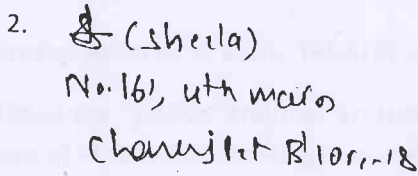 2. (Sheela)
No. 161, 4th main
Chamrajpet B'lore-18